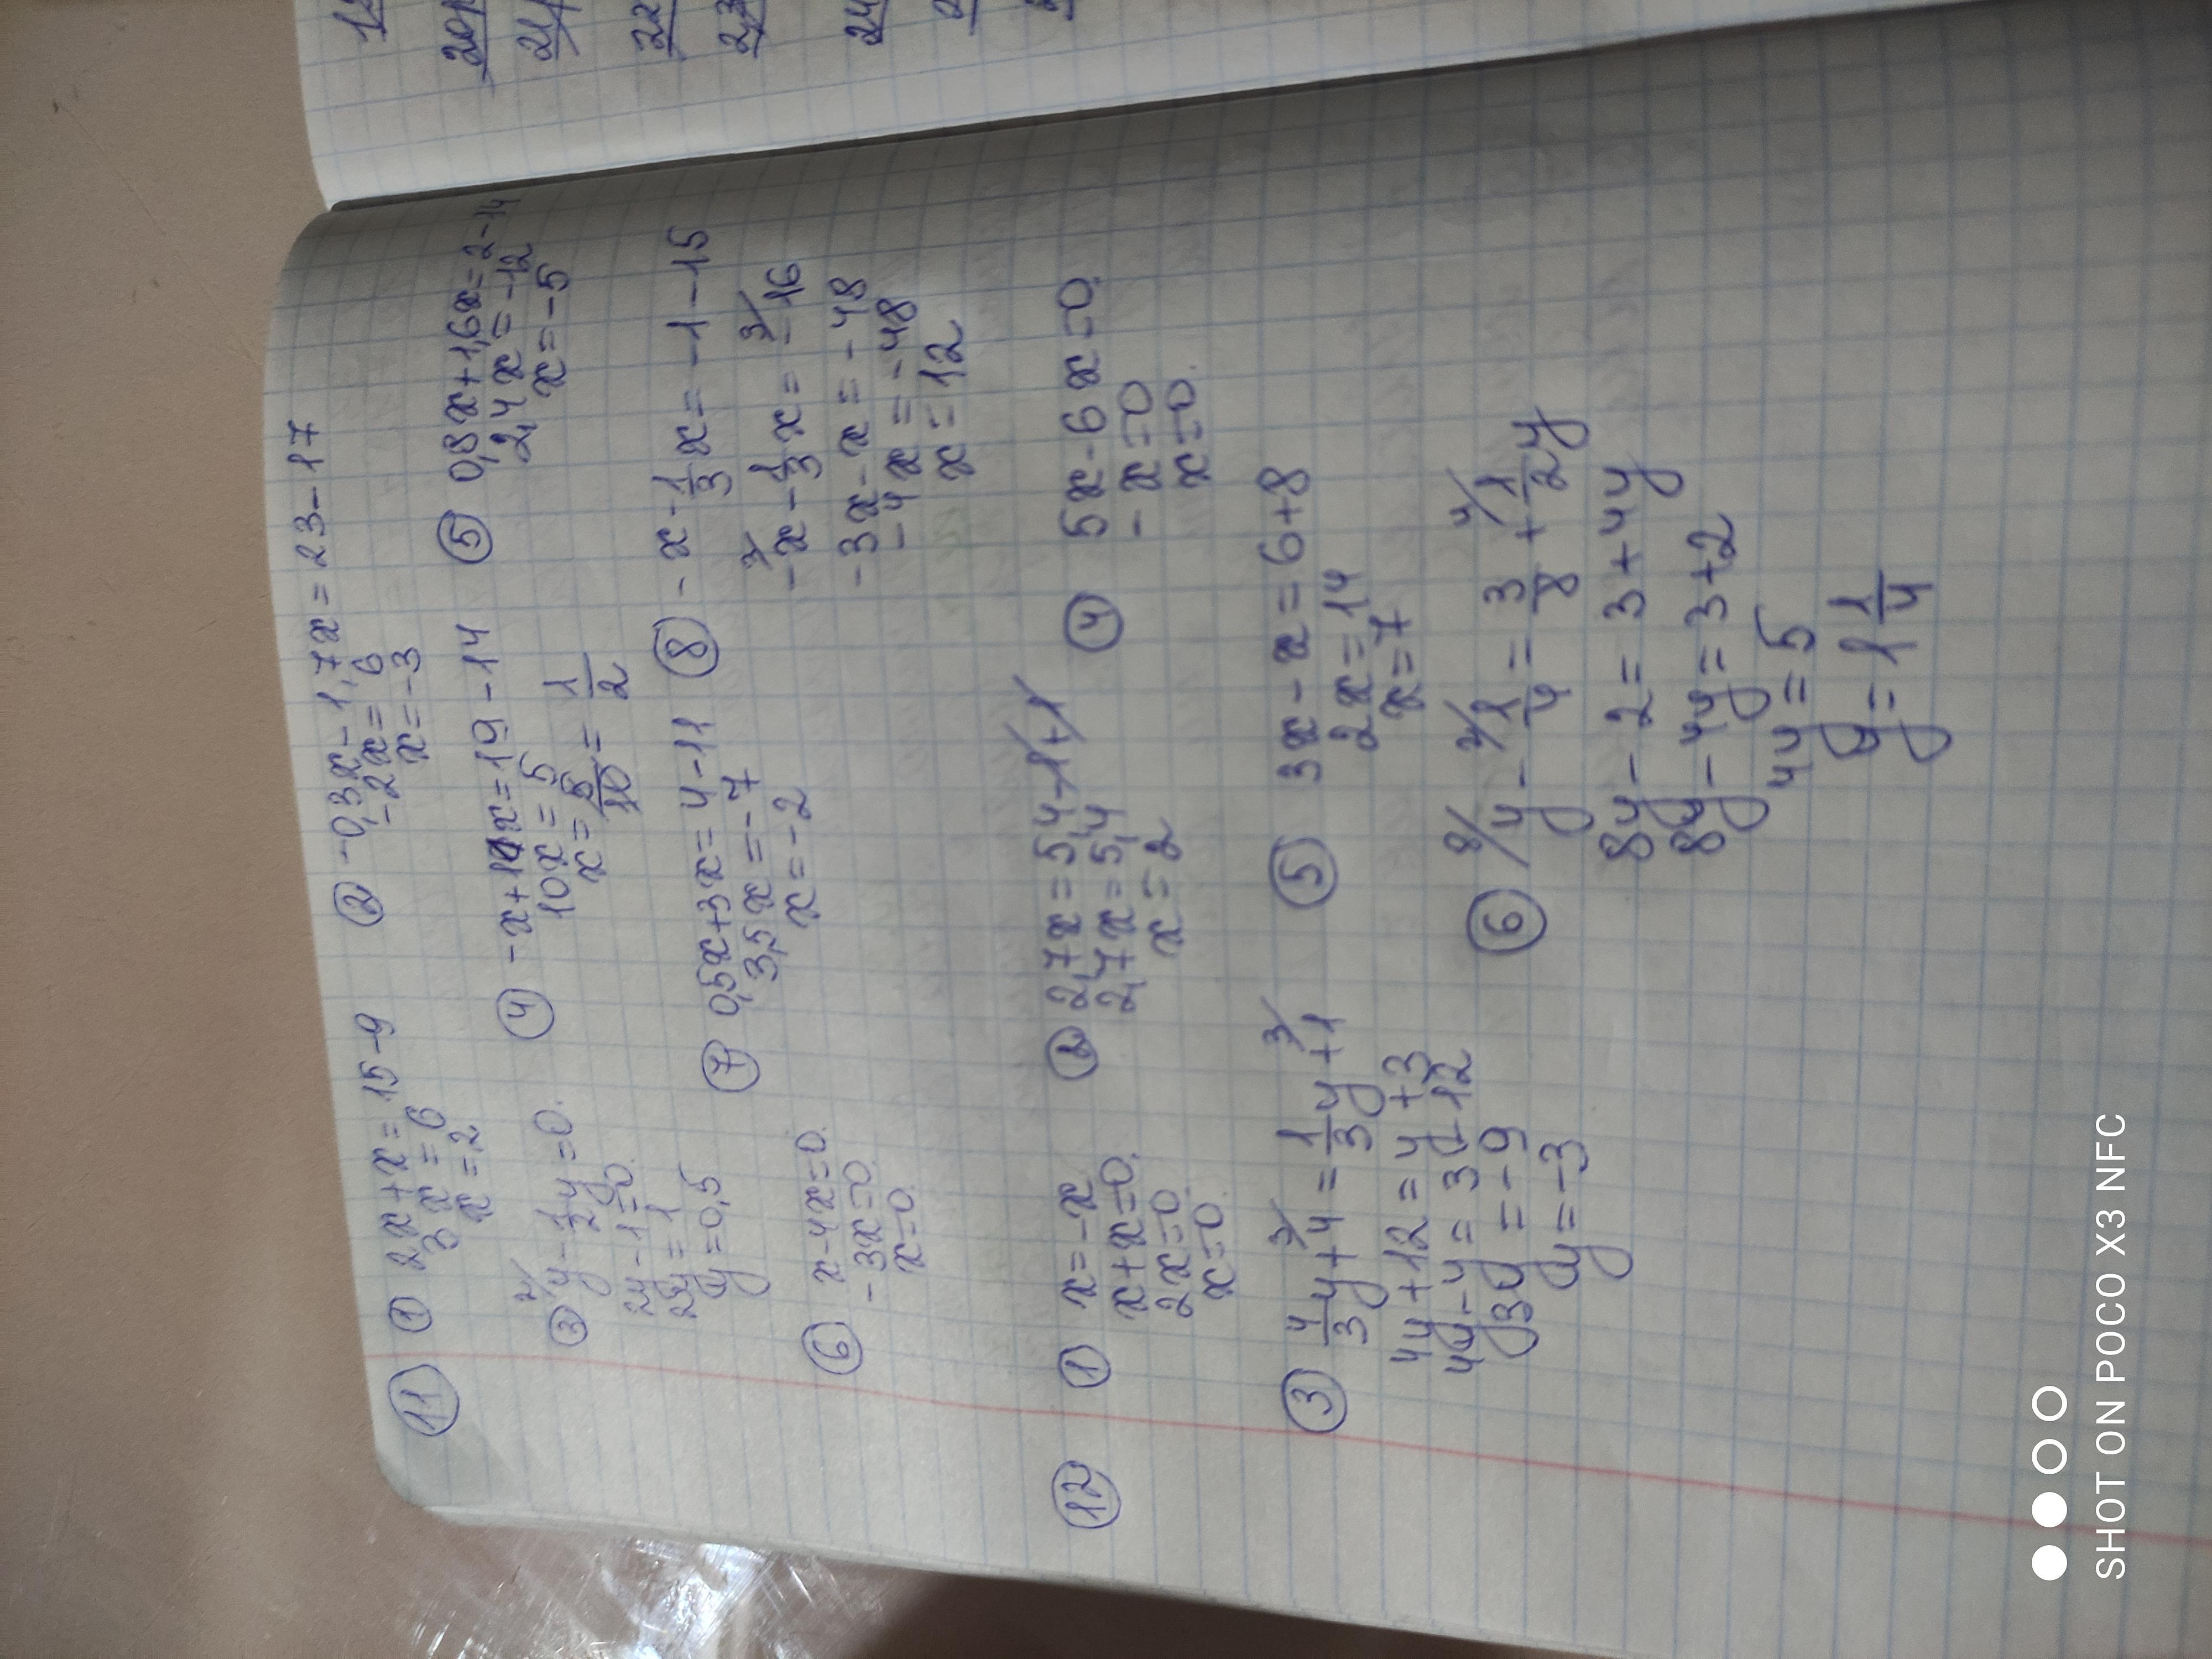 11
① 2x + x = 15 - 9
3x = 6
x = 2
② -0,3x - 1,7x = 23 - 17
-2x = 6
x = -3
③ 2/ y - 1/2 y = 0
2y - 1 = 0
2y = 1
y = 0,5
④ -x + 11x = 19 - 14
10x = 5
x = 5/10 = 1/2
⑤ 0,8x + 1,6x = 2 - 14
2,4x = -12
x = -5
⑥ x - 4x = 0
-3x = 0
x = 0
⑦ 0,5x + 3x = 4 - 11
3,5x = -7
x = -2
⑧ -x - 1/3 x = -1 - 15
3/ -x - 1/3 x = 3/ -16
-3x - x = -48
-4x = -48
x = 12
12
① x = -x
x + x = 0
2x = 0
x = 0
② 2,7x = 5,4 - 1 + 1
2,7x = 5,4
x = 2
③ 4/3 y + 3/ 4 = 1/3 y + 3/ 1
4y + 12 = y + 3
4y - y = 3 - 12
3y = -9
y = -3
④ 5x - 6x = 0
-x = 0
x = 0
⑤ 3x - x = 6 + 8
2x = 14
x = 7
⑥ 8/ y - 2/ 1/4 = 3/8 + 4/ 1/2 y
8y - 2 = 3 + 4y
8y - 4y = 3 + 2
4y = 5
y = 1 1/4
20
21
22
23
24
SHOT ON POCO X3 NFC